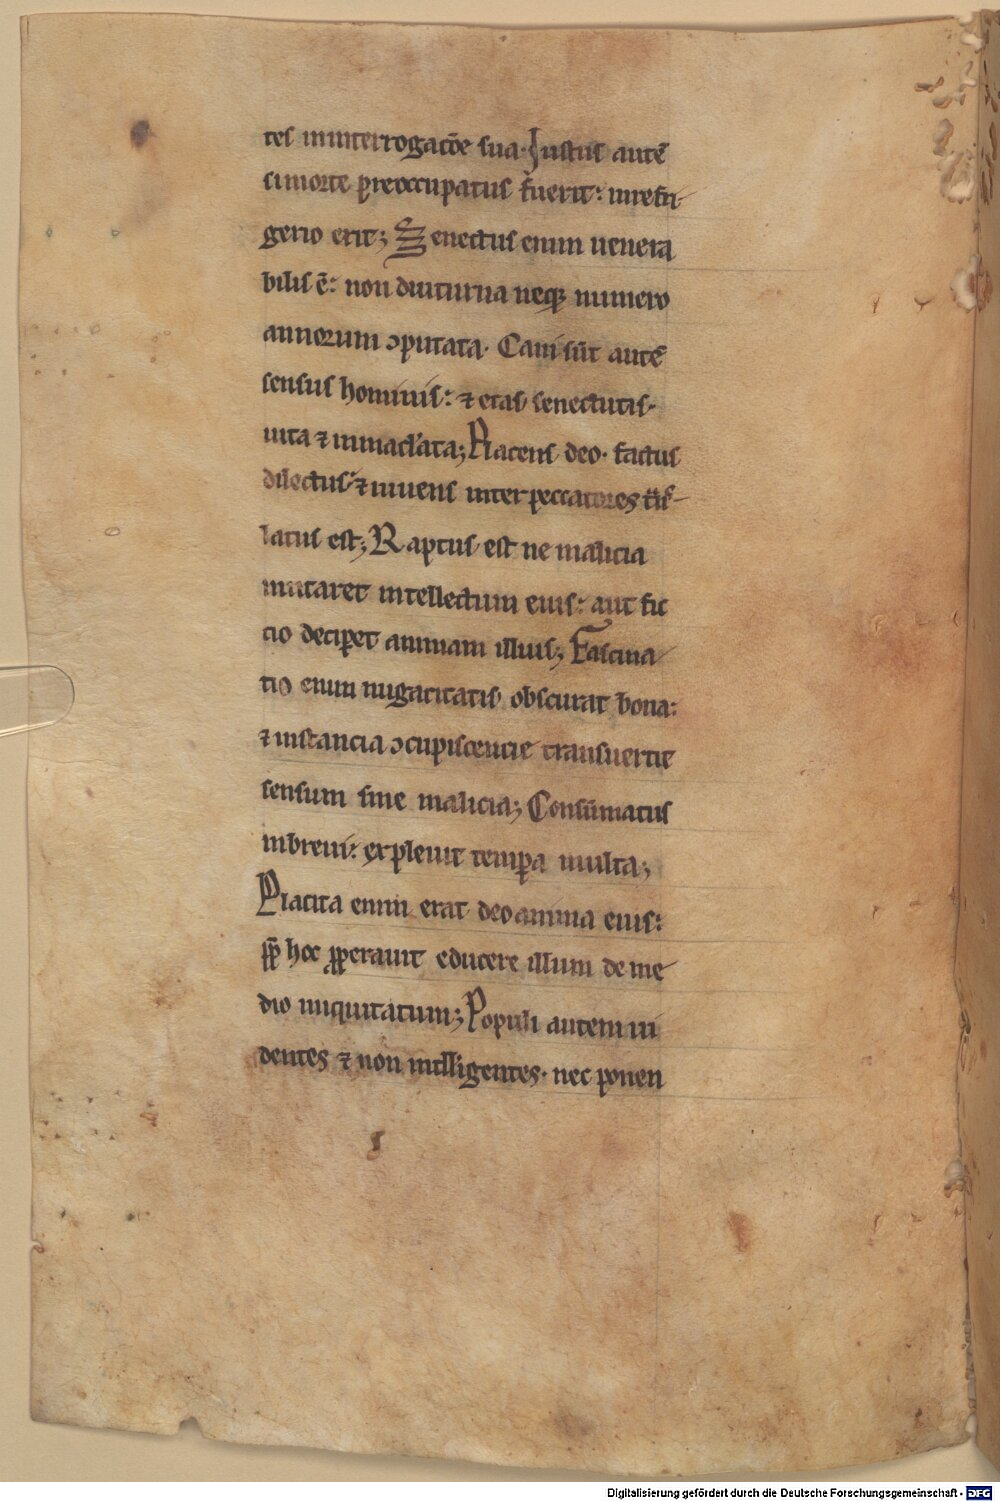 tes ininterrogatōe sua· Iustus autē
simorte preoccupatus fuerit: inrefri
gerio erit; Senectus enim uenera
bilis ē: non diuturna neq; numero
annorum ↄputata· Cani sūt autē
sensus hominis: ⁊ etas senectutis·
uita ⁊ inmacl'ata; Placens deo· factus
dilectus: ⁊ uiuens inter peccatores
latus est; Raptus est ne malicia
mutaret intellectum eius: aut fic
cio deciꝑet animam illius; Fascina
tio enim nugacitatis obscurat bona:
⁊ instancia ↄcupiscencie transuertit
sensum sine malicia; Consūmatus
inbreui: expleuit temꝑa multa;
Placita enim erat deo anima eius:
ꝓperauit educere illum de me
dio iniquitatum; Populi autem ui
dentes ⁊ non intlligentes· nec ponen
Digitalisierung gefördert durch die Deutsche Forschungsgemeinschaft - DFG